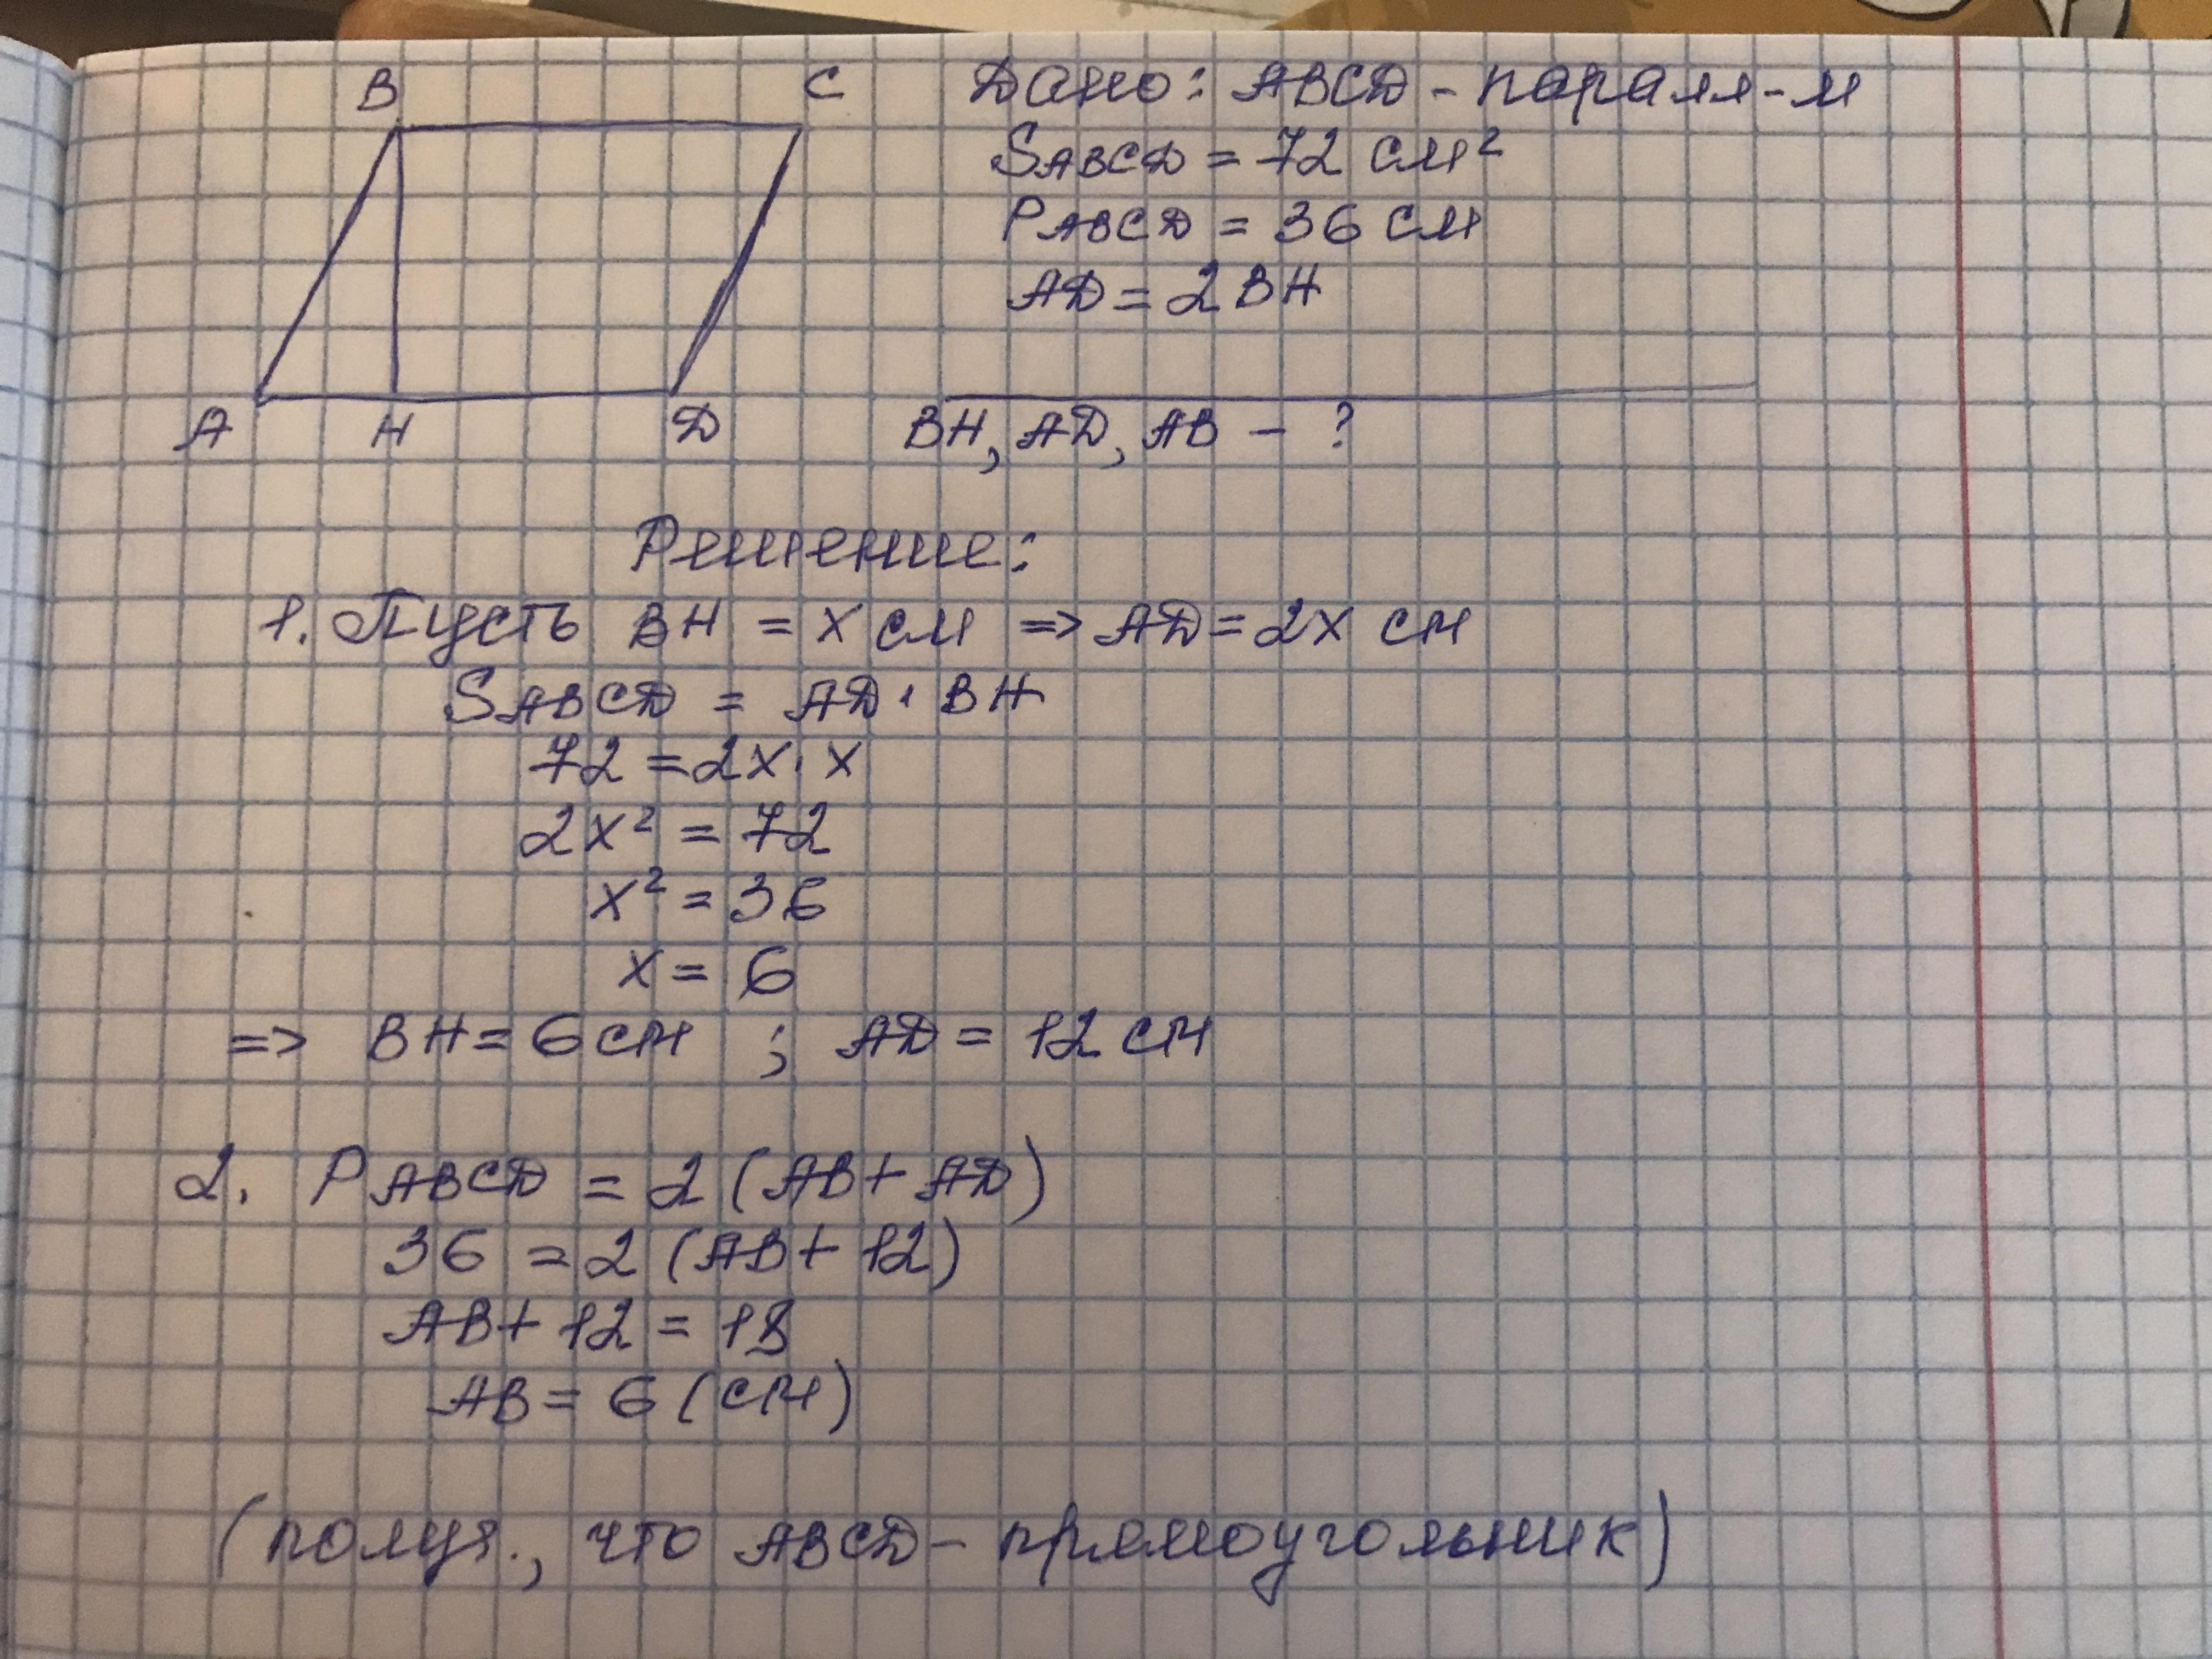 B
C
A
H
D
Дано: ABCD - паралл-м
SABCD = 72 см²
PABCD = 36 см
AD = 2BH
BH, AD, AB - ?
Решение:
1. Пусть BH = x см => AD = 2x см
SABCD = AD · BH
72 = 2x · x
2x² = 72
x² = 36
x = 6
=> BH = 6 см ; AD = 12 см
2. PABCD = 2 (AB + AD)
36 = 2 (AB + 12)
AB + 12 = 18
AB = 6 (см)
(получ., что ABCD - прямоугольник)